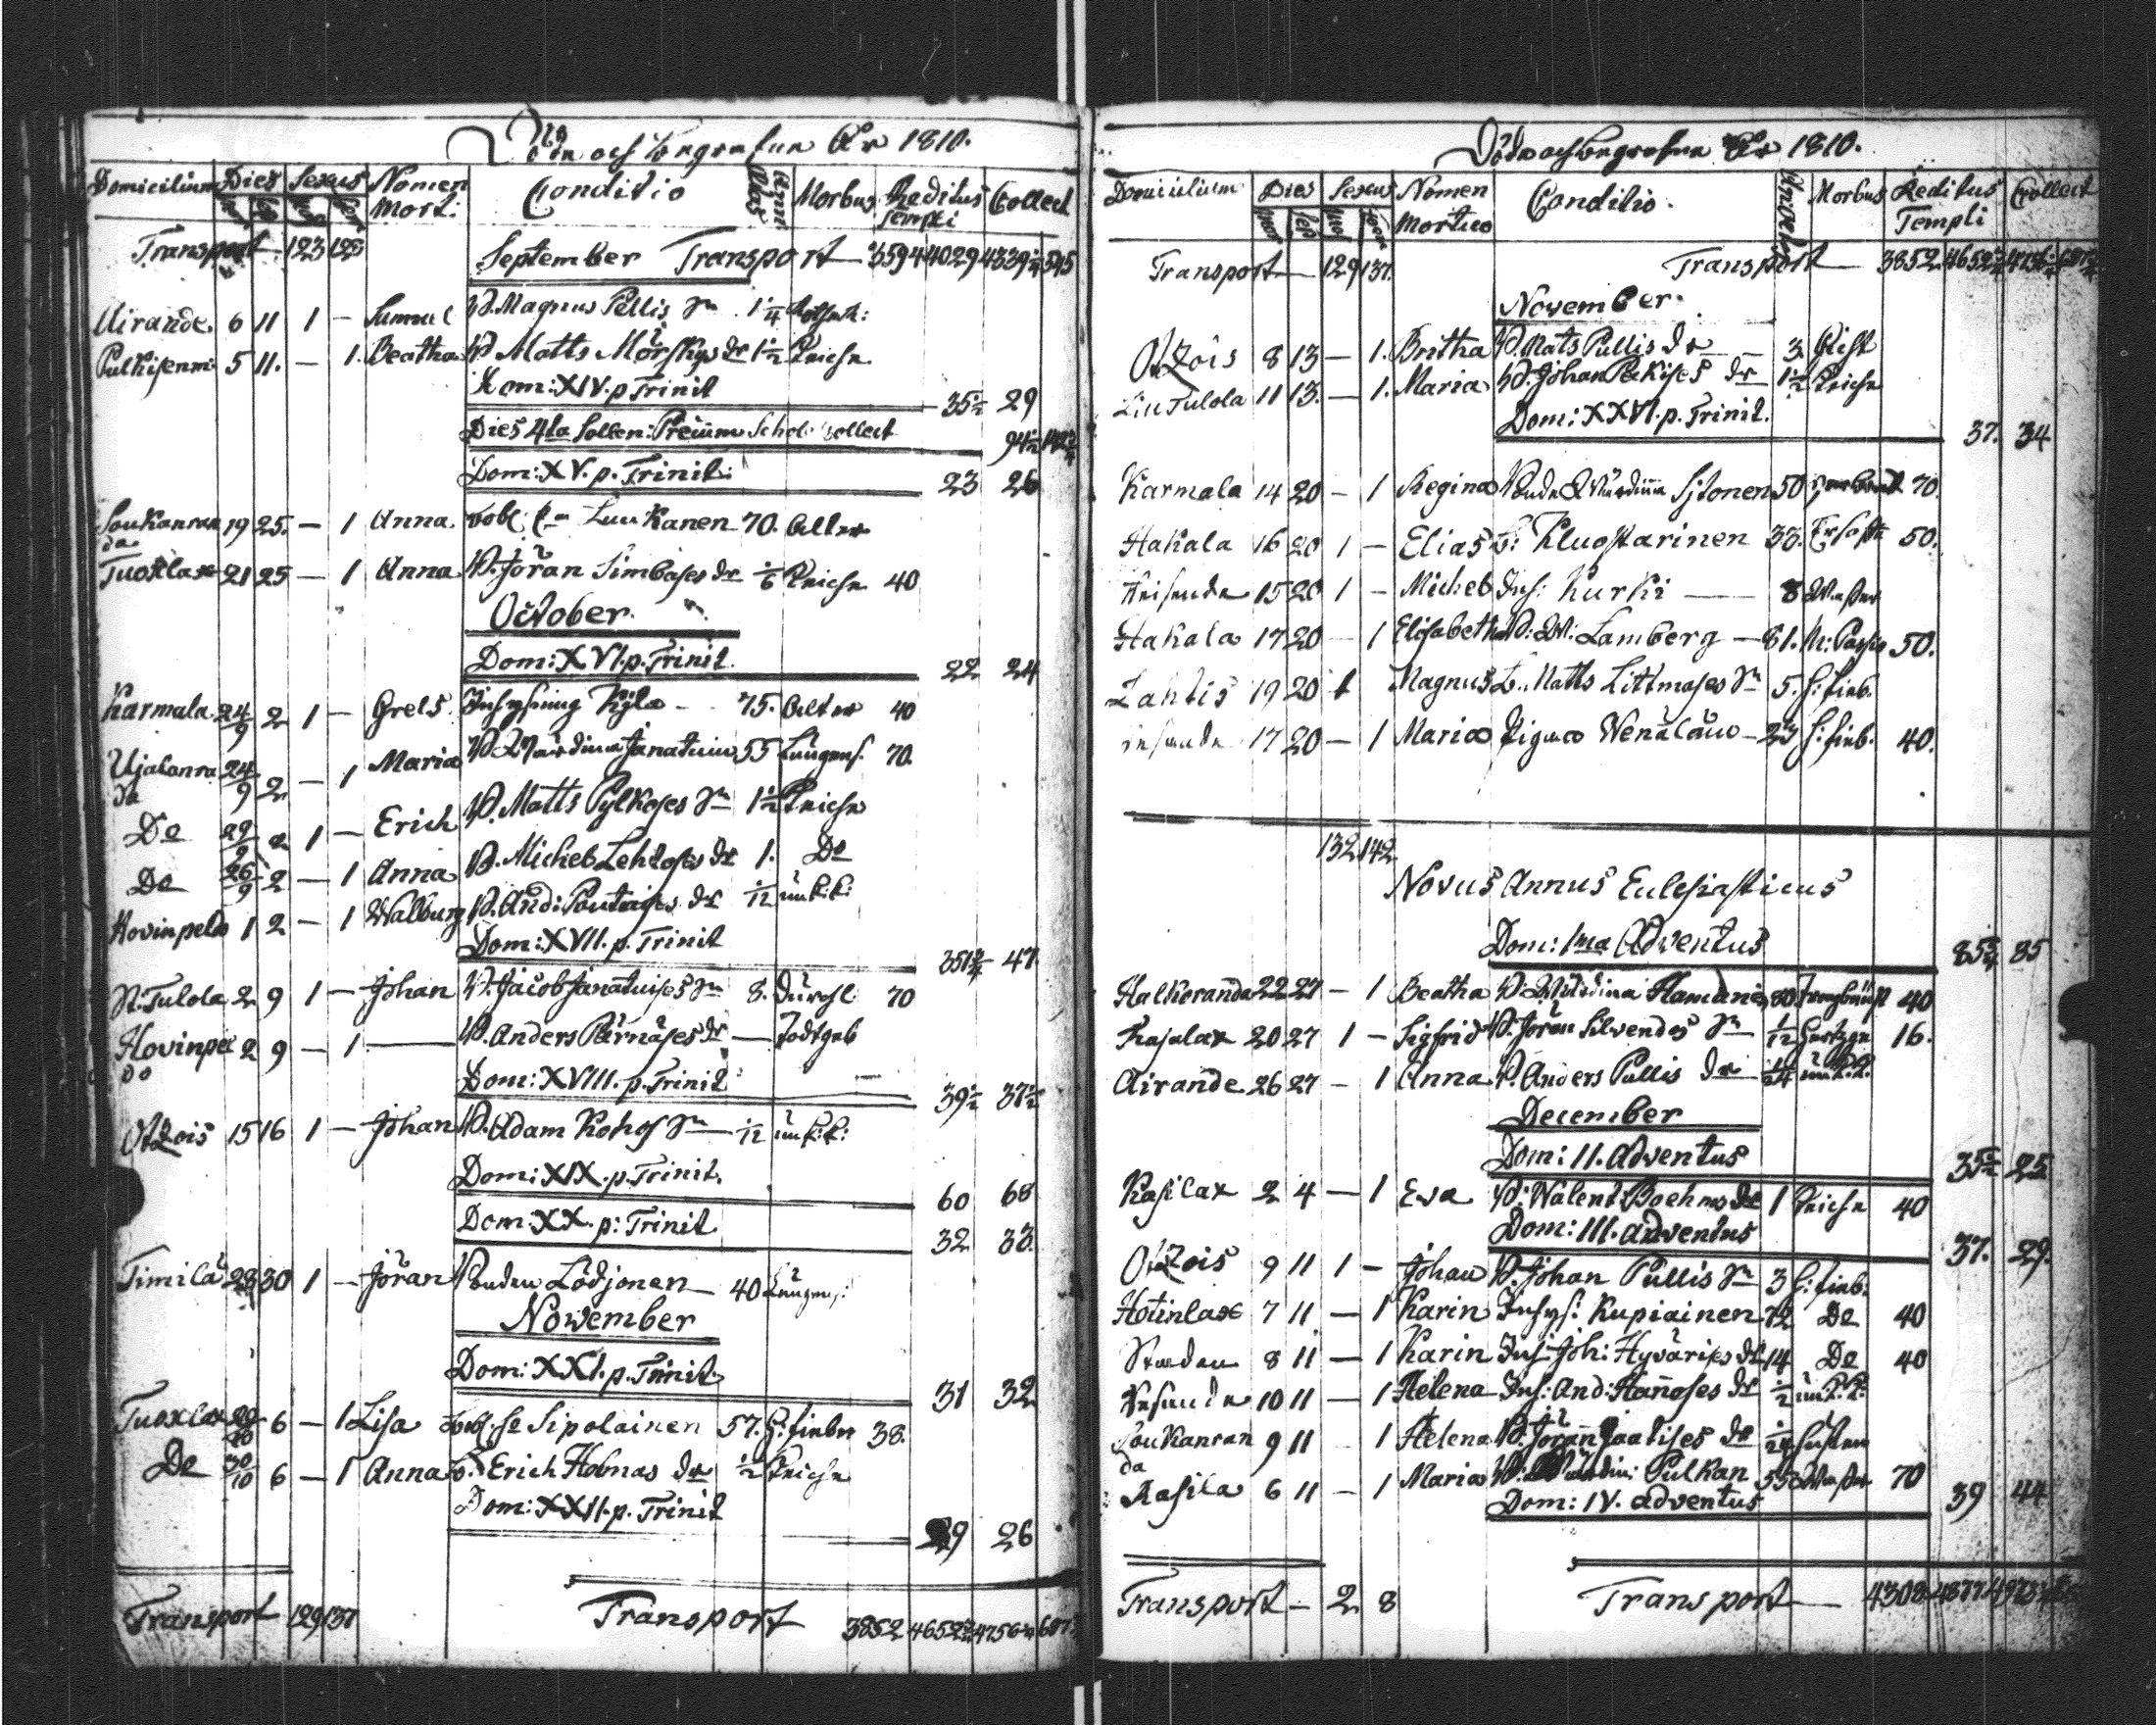 Döde och begrafne År 1810.
Domicilium Dies Sexus Nomen Mort: Conditio Morbus Reditus Templi Collect
Transport 123 129 September Transport 3594 4029 4339 1/2 545
Airande 6 11 1 – Samuel B. Magnus Pellis Sn 1 1/4
Pulkisenm 5 11. – 1. Beatha B Matts Mörskys dr 1 1/2 Keichn
Dom: XIV. p Trinit 35 1/2 29
Dies 4ta Sollen: Precum Schol Collect
Dom: XV. p. Trinit: 23 26
Soukanranda 19 25. – 1 Anna Luukanen 70. Alter
Tuoxlax 21 25 – 1 Anna B. Jöran Simbases dr 1/6 Keichn 40
October
Dom: XVI. p. Trinit. 22 24
Karmala 24/9 2 1 – Grels. Kylä 75. Alter 40
Ujalanranda 24/9 2 – 1 Maria B. Wärdina Janatuin 55 Lungens. 70.
Do 29/9 2 1 – Erich B. Matts Pylkeses Sn 1 1/2 Keichn
Do 26/9 2 – 1 Anna B. Michel Lehtoses dr 1. Do
Hovinpeldo 1 2 – 1 Walburg B. And: Pontaises dr 1/12 unb.k:
Dom: XVII. p. Trinit 47
St. Tulola 2 9 1 – Johan B. Jacob Janatuises Sn 8. Durchl 70
Hovinpeldo 2 9 – 1 — B. Anders Pärnäses dr — Todtgeb
Dom: XVIII. p. Trinit 39 1/2 37 1/2
Otzois 15 16 1 – Johan B. Adam Kohos Sn – 1/12 unb:k:
Dom: XIX. p. Trinit. 60 68
Dom: XX. p: Trinit 32 33.
Timila 28 30 1 – Jöran Bonden Lödjonen – 40 Lungens:
November
Dom: XXI. p. Trinit 31 32
Tuoxlax 29/10 6 – 1 Lisa Sipolainen 57. H: fieber 38.
Do 30/10 6 – 1 Anna B. Erich Holmas dr 1/2 Keichn
Dom: XXII. p. Trinit 29 26
Transport 129 137 Transport 3852 4652 3/4 4756 1/4
Döde och begrafne År 1810.
Domicilium Dies Sexus Nomen Mortuo Conditio. Morbus Reditus Templi Collect
Transport — 129 137. Transport — 3852
November.
Otzois 8 13 – 1. Britha B. Mats Pullis dr — 3.
Lill Tulola 11 13. – 1. Maria B. Johan Pekises dr 1 1/2 Keichn
Dom: XXVI. p. Trinit. 37. 34
Karmala 14 20 – 1 Regina Sjtonen 50 70.
Hakala 16 20 1 – Elias B: Kluostarinen 33. 50.
Reisende 15 20 1 – Michel Inh: Kurki — 8 Wasser
Hakala 17 20 – 1 Elisabetha B: W. Lamberg – 61. 50.
Lahtis 19 20 1 Magnus B.. Matts Littmases Sn 5. H: fieb.
17 20 – 1 Maria Piga Wenäläin – 23 H: fieb. 40.
132 142
Novus Annus Eclesiasticus
Dom: 1ma Adventus 85 3/4 85
Halkoranda 22 27 – 1 Beatha B. Wärdina 80 40
Kasalax 20 27 1 – Sigfrid B. Jöran Silvendes Sn 1/12 16.
Airande 26 27 – 1 Anna B. Anders Pullis dr unb.k.
December
Dom: II. Adventus 35 1/2 25
Kasilax 2 4 – 1 Eva B: Walent: Boehms dr 1 Keichn 40
Dom: III. Adventus 37. 29.
Otzois 9 11 1 – Johan B. Johan Pullis Sn 3 H: fieb.
Hotinlax 7 11 – 1 Karin Inhys: Kupiainen 72 Do 40
Staden 8 11 – 1 Karin Inh: Joh: Hyväries dr 14 Do 40
10 11 – 1 Helena Inh: And: Hanoses dr 1/2 unb.k.
Soukanranda 9 11 – 1 Helena B. Jöran Jaatises dr Husten
Rasila 6 11 – 1 Maria B: Wärdin: Pulkan 55 Wasser 70
Dom: IV. Adventus 39 44
Transport – 2 8 Transport — 4308